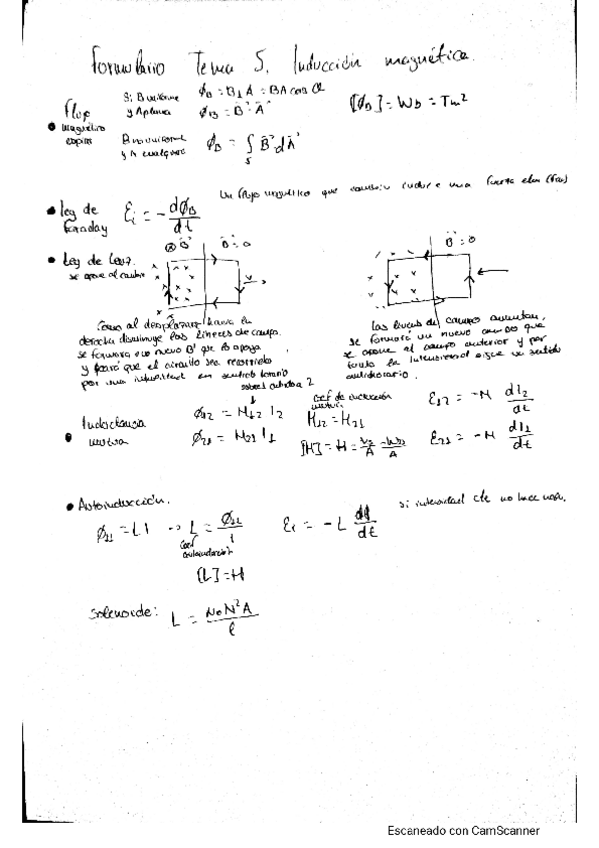 Formulario Tema 5. Inducción magnética.
Flujo magnético
Si B uniforme y A plana
ϕ_B = B⊥A = BA cos α
ϕ_B = B⃗ · A⃗
[ϕ_B] = Wb = Tm²
B no uniforme y A cualquiera
ϕ_B = ∫_S B⃗ dA⃗
Un flujo magnético que cambia induce una fuerza elm (fem)
• Ley de Faraday
ε_i = - dϕ_B/dt
• Ley de Lenz.
se opone al cambio
⊗ B⃗
B⃗ = 0
v
B⃗ = 0
Como al desplazar hacia la
derecha disminuye las líneas de campo.
se formará un nuevo B⃗ que lo apoya
y hará que el circuito sea recorrido
por una intensidad en sentido horario
Las líneas de campo aumentan,
se formará un nuevo campo que
se opone al campo anterior y por
tanto la intensidad sigue un sentido
antihorario.
• Inductancia mutua
sobre
2
ϕ12 = M12 I2
ϕ21 = M21 I1
Coef de inducción mutua
M12 = M21
[M] = H = Wb/A
ε12 = -M dI2/dt
ε21 = -M dI1/dt
• Autoinducción.
ϕ11 = LI → L = ϕ11/I
Coef autoinducción
[L] = H
ε_i = -L dI/dt
si intensidad cte no hace nada.
Solenoide: L = μ0N²A/l
Escaneado con CamScanner